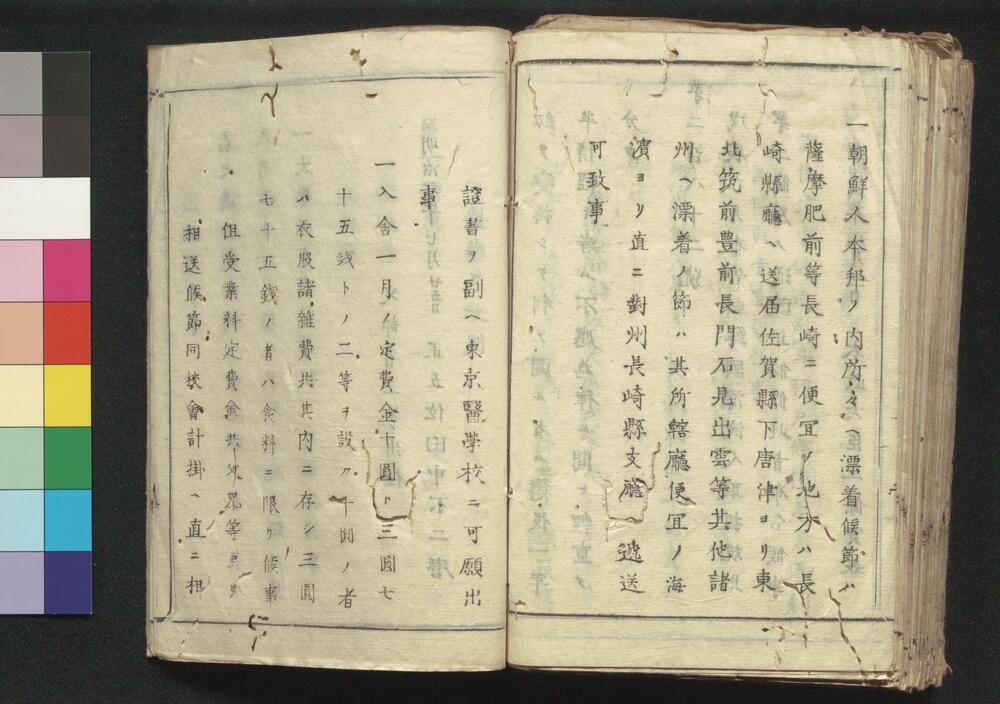 一朝鮮人本邦ノ内所々ヘ漂着候節ハ
薩摩肥前等長崎ニ便宜ノ地方ハ長
崎縣廳ヘ送届佐賀縣下唐津ヨリ東
北筑前豊前長門石見出雲等其他諸
州ヘ漂着ノ節ハ其所轄廳便宜ノ海
濱ヨリ直ニ對州長崎縣支廳ヘ遞送
可致事
證書ヲ副ヘ東京醫學校ニ可願出
事
一入舎一月ノ定費金十圓ト三圓七
十五錢トノ二等ヲ設ク十圓ノ者
ハ衣服諸雑費共其内ニ存シ三圓
七十五錢ノ者ハ食料ニ限リ候事
但受業料定費金共父兄等ヨリ
相送候節同校會計掛ヘ直ニ相